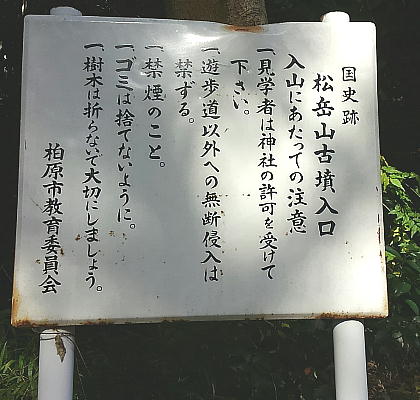 国史跡
松岳山古墳入口
入山にあたっての注意
一見学者は神社の許可を受けて
下さい。
一遊歩道以外への無断侵入は
禁ずる。
一禁煙のこと。
一ゴミは捨てないように。
一樹木は折らないで大切にしましょう。
柏原市教育委員会